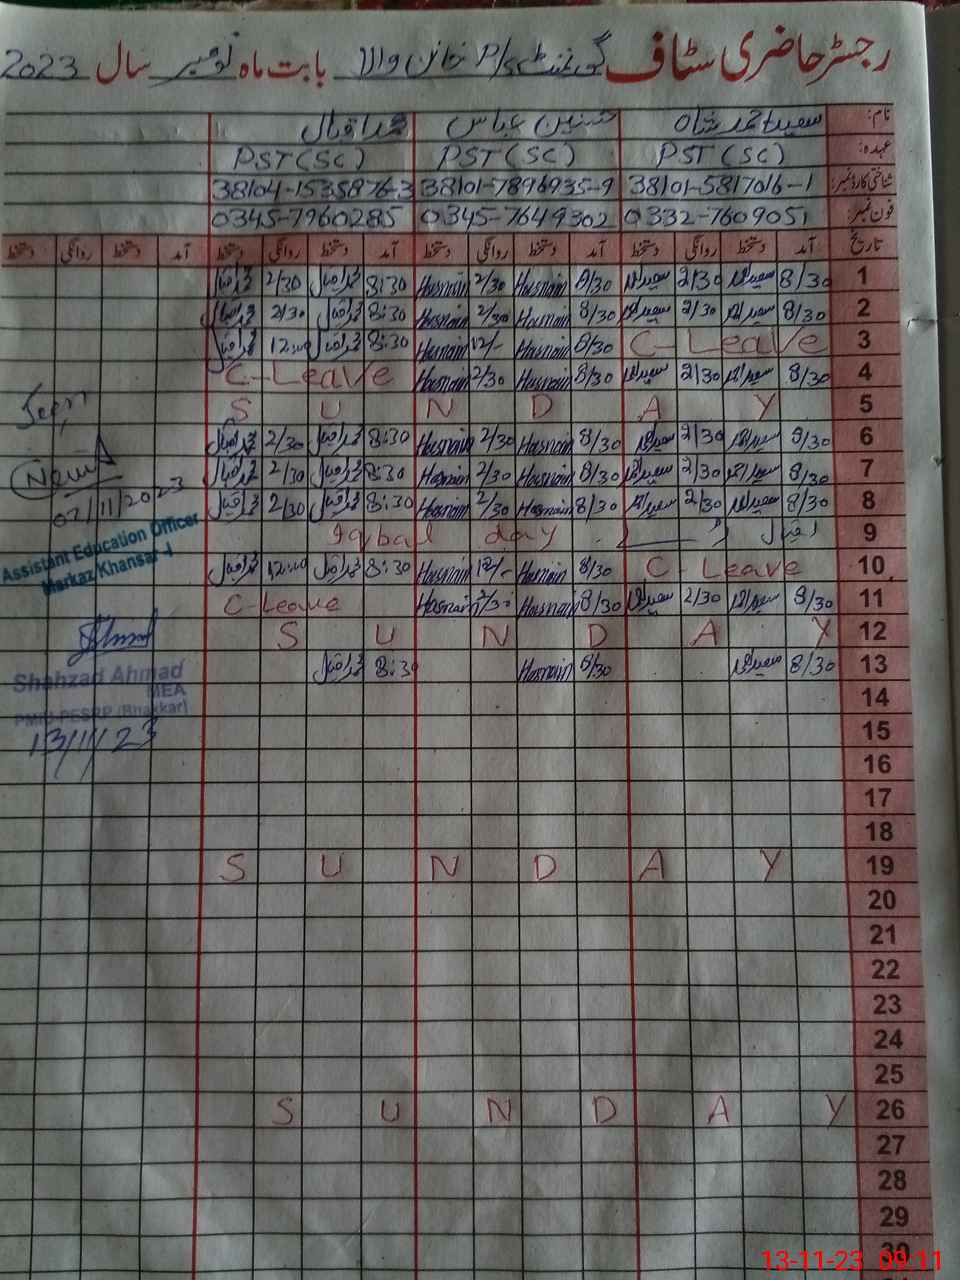 رجسٹر حاضری سٹاف گورنمنٹ P/S خانن والا بابت ماہ نومبر سال 2023
نام: سعید احمد شاہ حسنین عباس محمد اقبال
عہدہ: PST (SC) PST (SC) PST (SC)
شناختی کارڈ نمبر: 38101-5817016-1 38101-7896935-9 38104-1535876-3
فون نمبر: 0332-7609051 0345-7649302 0345-7960285
تاریخ آمد دستخط روانگی دستخط آمد دستخط روانگی دستخط آمد دستخط روانگی دستخط آمد دستخط روانگی دستخط
1 8/30 سعید احمد 2/30 سعید احمد 8/30 Hasnain 2/30 Hasnain 8:30 محمد اقبال 2/30 محمد اقبال
2 8/30 سعید احمد 2/30 سعید احمد 8/30 Hasnain 2/30 Hasnain 8:30 محمد اقبال 2/30 محمد اقبال
3 C-Leave 8/30 Hasnain 12/- Hasnain 8:30 محمد اقبال 12:00 محمد اقبال
4 8/30 سعید احمد 2/30 سعید احمد 8/30 Hasnain 2/30 Hasnain C-Leave
5 S U N D A Y
6 8/30 سعید احمد 2/30 سعید احمد 8/30 Hasnain 2/30 Hasnain 8:30 محمد اقبال 2/30 محمد اقبال
7 8/30 سعید احمد 2/30 سعید احمد 8/30 Hasnain 2/30 Hasnain 8:30 محمد اقبال 2/30 محمد اقبال
8 8/30 سعید احمد 2/30 سعید احمد 8/30 Hasnain 2/30 Hasnain 8:30 محمد اقبال 2/30 محمد اقبال
9 اقبال ڈے Iqbal day
10 C-Leave 8/30 Hasnain 12/- Hasnain 8:30 محمد اقبال 12:00 محمد اقبال
11 8/30 سعید احمد 2/30 سعید احمد 8/30 Hasnain 2/30 Hasnain C-Leave
12 S U N D A Y
13 8/30 سعید احمد 8/30 Hasnain 8:30 محمد اقبال
14
15
16
17
18
19 S U N D A Y
20
21
22
23
24
25
26 S U N D A Y
27
28
29
30
07/11/2023
Assistant Education Officer
Markaz Khansar-I
Shahzad Ahmad
MEA
PMIU-PESRP (Bhakkar)
13/11/23
13-11-23 09:11